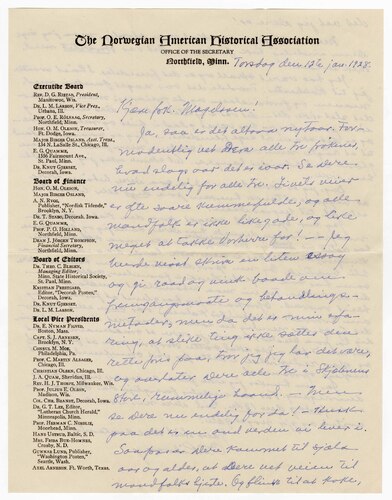 The Norwegian American Historical Association
OFFICE OF THE SECRETARY
Northfield, Minn.
Torsdag den 12te jan. 1928
Executive Board
REV. D. G. RISTAD, President,
Manitowoc, Wis.
DR. L. M. LARSON, Vice Pres.,
Urbana, Ill.
PROF. O. E. RÖLVAAG, Secretary,
Northfield, Minn.
HON. O. M. OLESON, Treasurer,
Ft. Dodge, Iowa.
MAJOR BIRGER OSLAND, Asst. Treas.,
134 N. LaSalle St., Chicago, Ill.
E. G. QUAMME,
1186 Fairmount Ave.,
St. Paul, Minn.
DR. KNUT GJERSET,
Decorah, Iowa.
Board of Finance
HON. O. M. OLESON,
MAJOR BIRGER OSLAND,
A. N. RYGG,
Publisher, "Nordisk Tidende,"
Brooklyn, N. Y.
DR. T. STABO, Decorah, Iowa.
E. G. QUAMME,
PROF. P. O. HOLLAND,
Northfield, Minn.
DEAN J. JÖRGEN THOMPSON,
Financial Secretary,
Northfield, Minn.
Board of Editors
DR. THEO. C. BLEGEN,
Managing Editor,
Minn. State Historical Society,
St. Paul, Minn.
KRISTIAN PRESTGARD,
Editor, "Decorah Posten,"
Decorah, Iowa.
DR. KNUT GJERSET,
DR. L. M. LARSON,
Local Vice Presidents
DR. E. NYMAN FIGVED,
Boston, Mass.
CAPT. S. J. ARNESEN,
Brooklyn, N. Y.
CONSUL M. MOE,
Philadelphia, Pa.
PROF. C. MARTIN ALSAGER,
Chicago, Ill.
CHRISTIAN OLSEN, Chicago, Ill.
J. A. QUAM, Sheridan, Ill.
REV. H. J. THORPE, Milwaukee, Wis.
PROF. JULIUS E. OLSON,
Madison, Wis.
COL. CHR. BRANDT, Decorah, Iowa
DR. G. T. LEE, Editor,
"Lutheran Church Herald,"
Minneapolis, Minn.
PROF. HERMAN C. NORDLIE,
Moorhead, Minn.
HANS USTRUD, Baltic, S. D.
MRS. FRIDA BUE-HOMNES,
Crosby, N. D.
GUNNAR LUND, Publisher,
"Washington Posten,"
Seattle, Wash.
AXEL ARNESON, Ft. Worth, Texas.
Kjære frk. Magdoren!
Ja, saa er det altsaa nytaar. For-
modentlig vet Dere alle tre frøkener,
hvad slags aar det er iaar. Se dere
nu endelig for alle tre.
er ofte svare kummefulde, og alle
mandfolk er ikke like gode, og like
meget at takke Vorherre for! — Jeg
burde visst skrive en liten essay
og gi raad og vink baade om
fremgangsmaate og behandlings-
metoder, men da det er min erfa-
ring, at slike ting ikke sætter den
rette pris paa,
og overlater dere alle tre i Skjæbnens
store, rummelige haand. —
se dere nu endelig for da! — Husk
paa det er en ond verden vi lever i.
Saasnart dere kommet til sjæls
aar og alder, at dere vet veien til
mandfolks hjerte. Og flink til at koke,